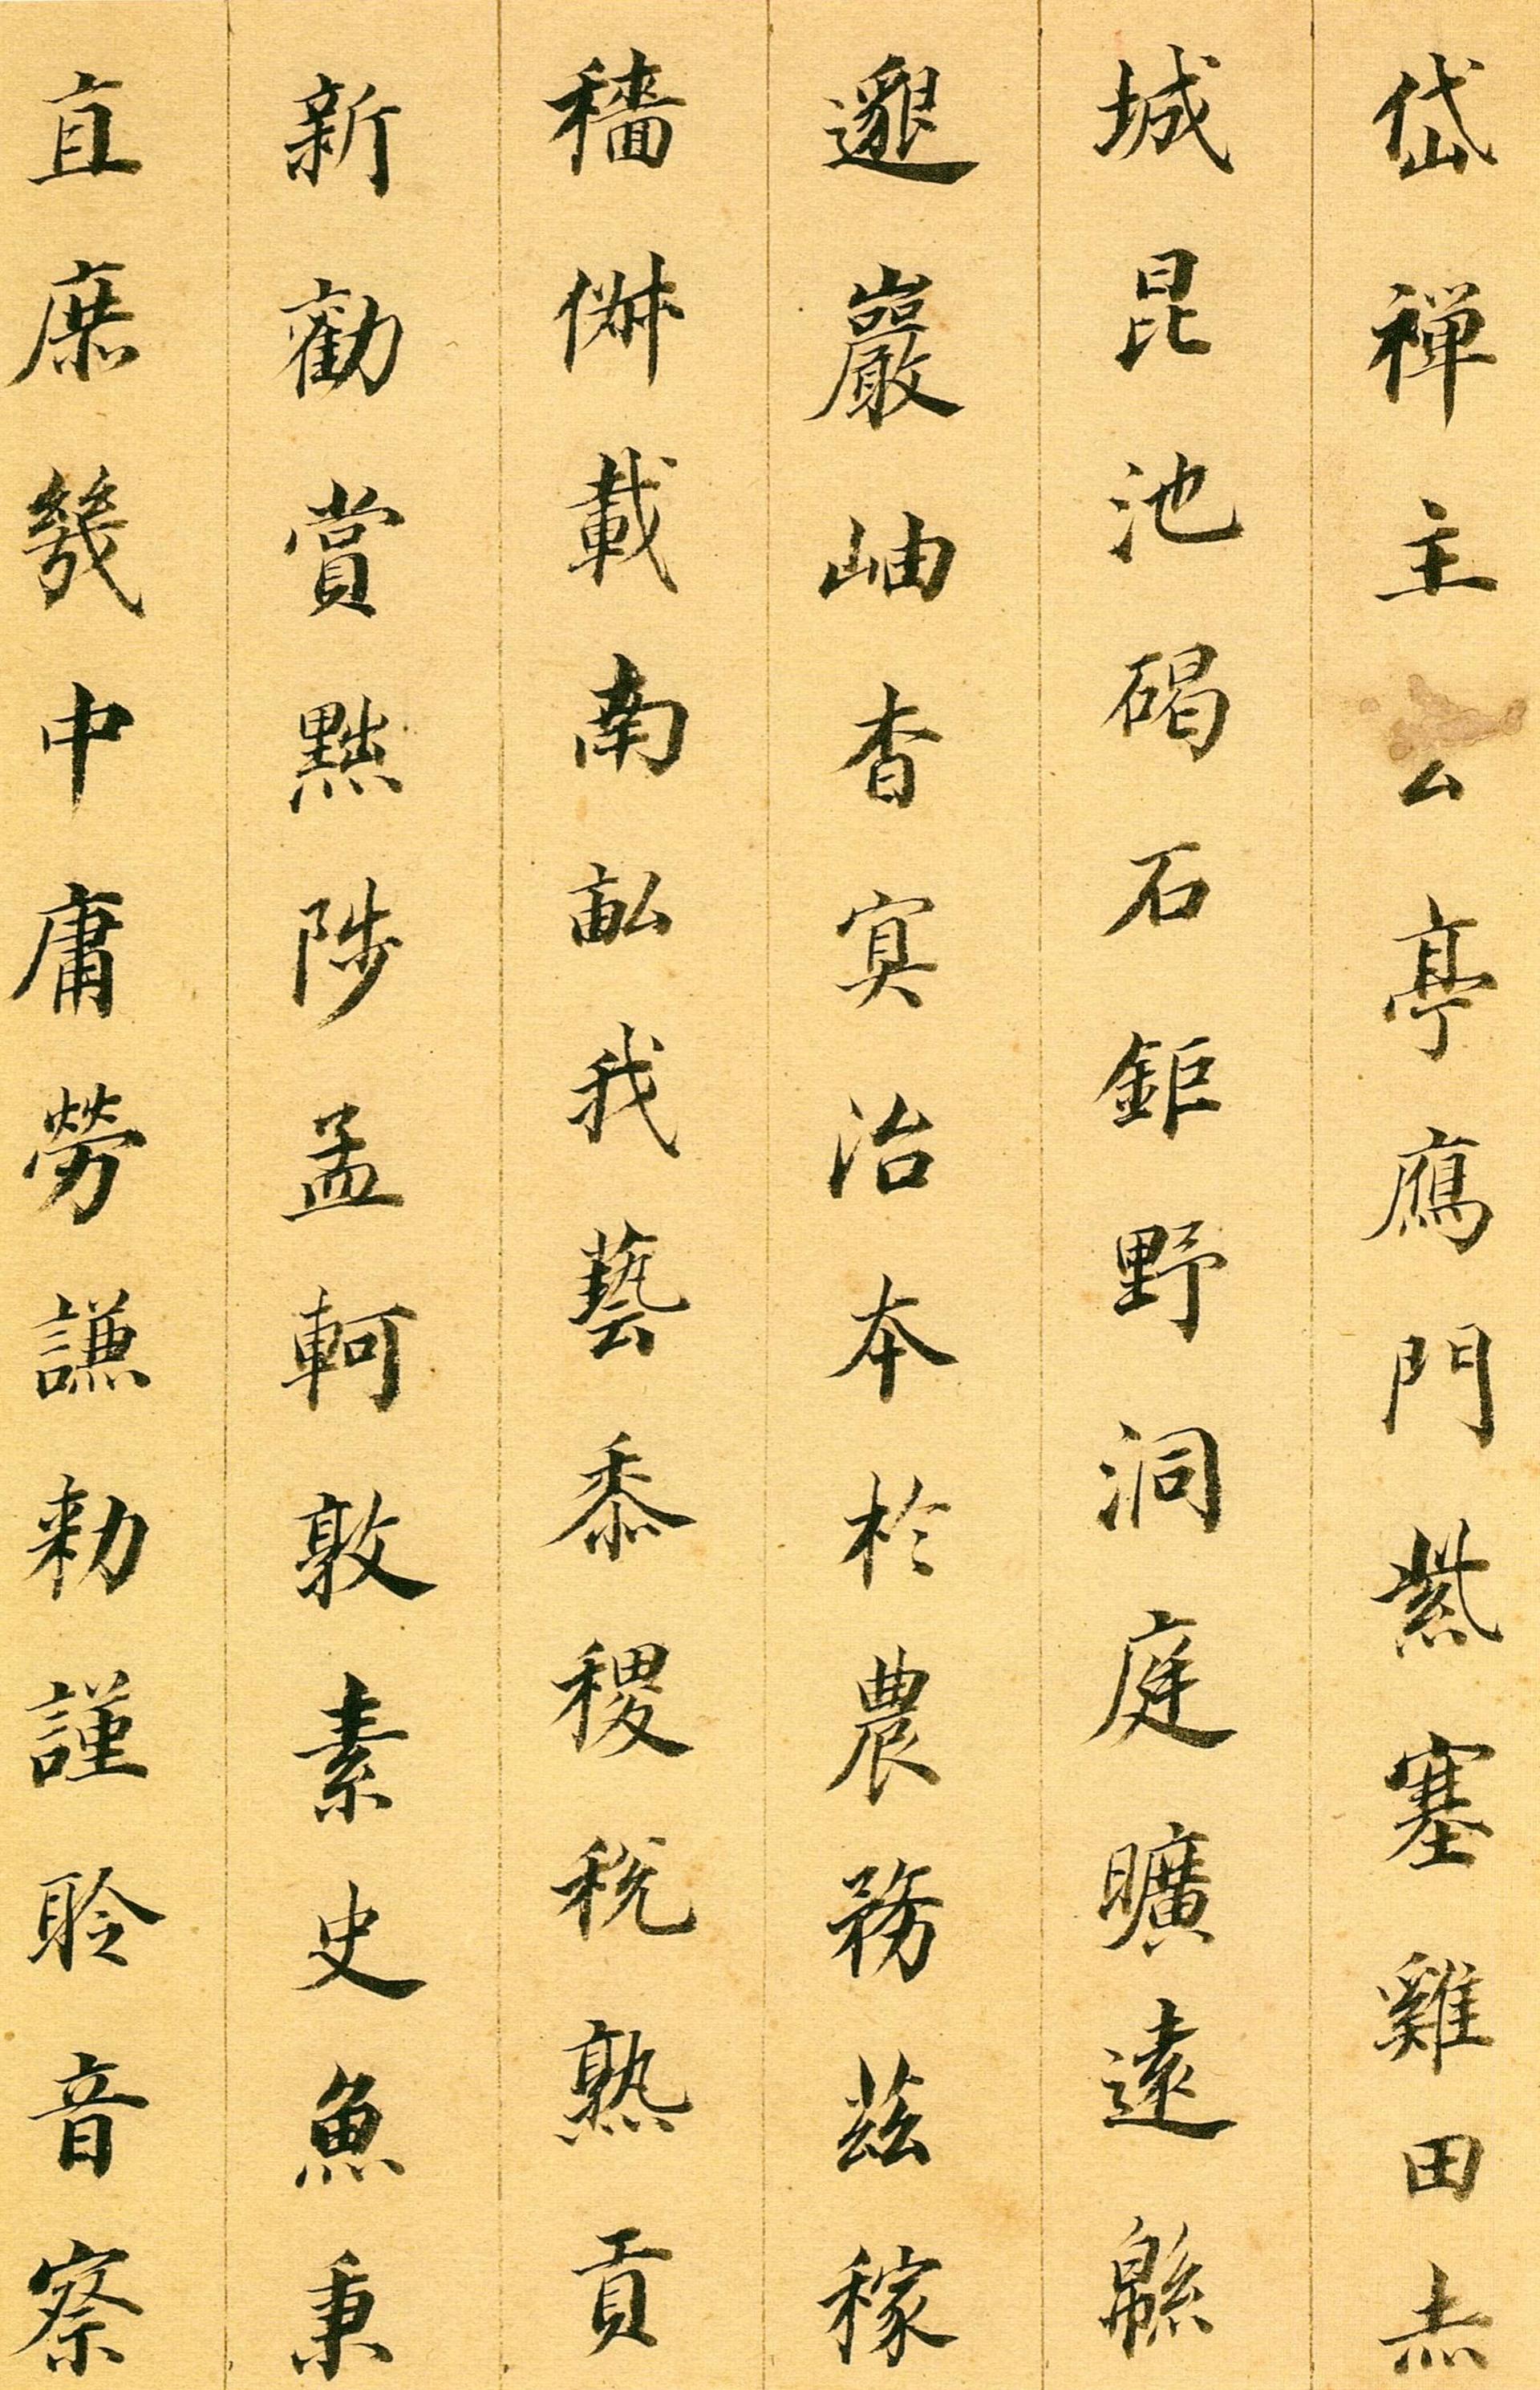 岱禪主云亭鴈門紫塞雞田赤
城昆池碣石鉅野洞庭曠遠緜
邈巖岫杳冥治本於農務茲稼
穡俶載南畝我藝黍稷稅熟貢
新勸賞黜陟孟軻敦素史魚秉
直庶幾中庸勞謙勅謹聆音察